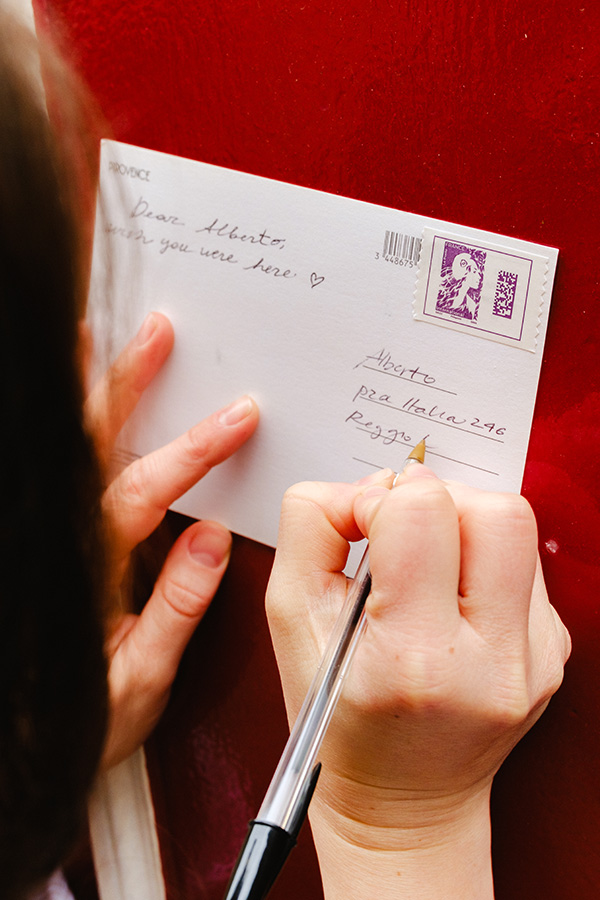 PROVENCE
Dear Alberto,
wish you were here. ♡
3 448675
FRANCE
Alberto
pza Italia 246
Reggio